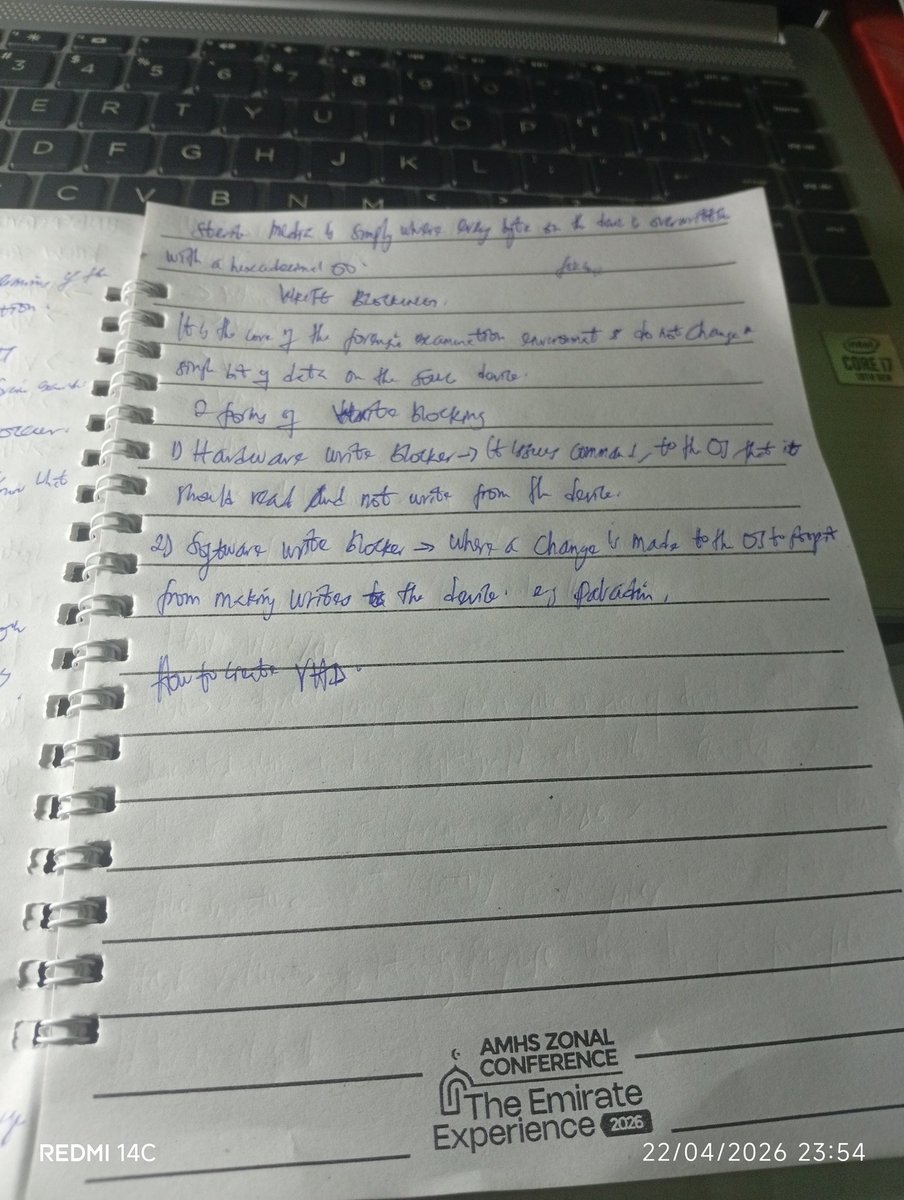 Sterile media is simply where every byte on the device is overwritten
with a hexadecimal 00.
WRITE BLOCKERS.
It is the core of the forensic examination environment & do not change a
single bit of data on the source device.
2 forms of write blocking
1) Hardware write blocker → It issues commands to the OS that it
should read and not write from the device.
2) Software write blocker → where a change is made to the OS to
from making writes to the device. eg Paladin.
How to create VHD.
AMHS ZONAL
CONFERENCE
The Emirate
Experience 2026
REDMI 14C
22/04/2026 23:54
# 3
$ 4
% 5
6
& 7
* 8
E R T Y U I O P
D F G H J K L
C V B N M
intel
CORE i7
10TH GEN